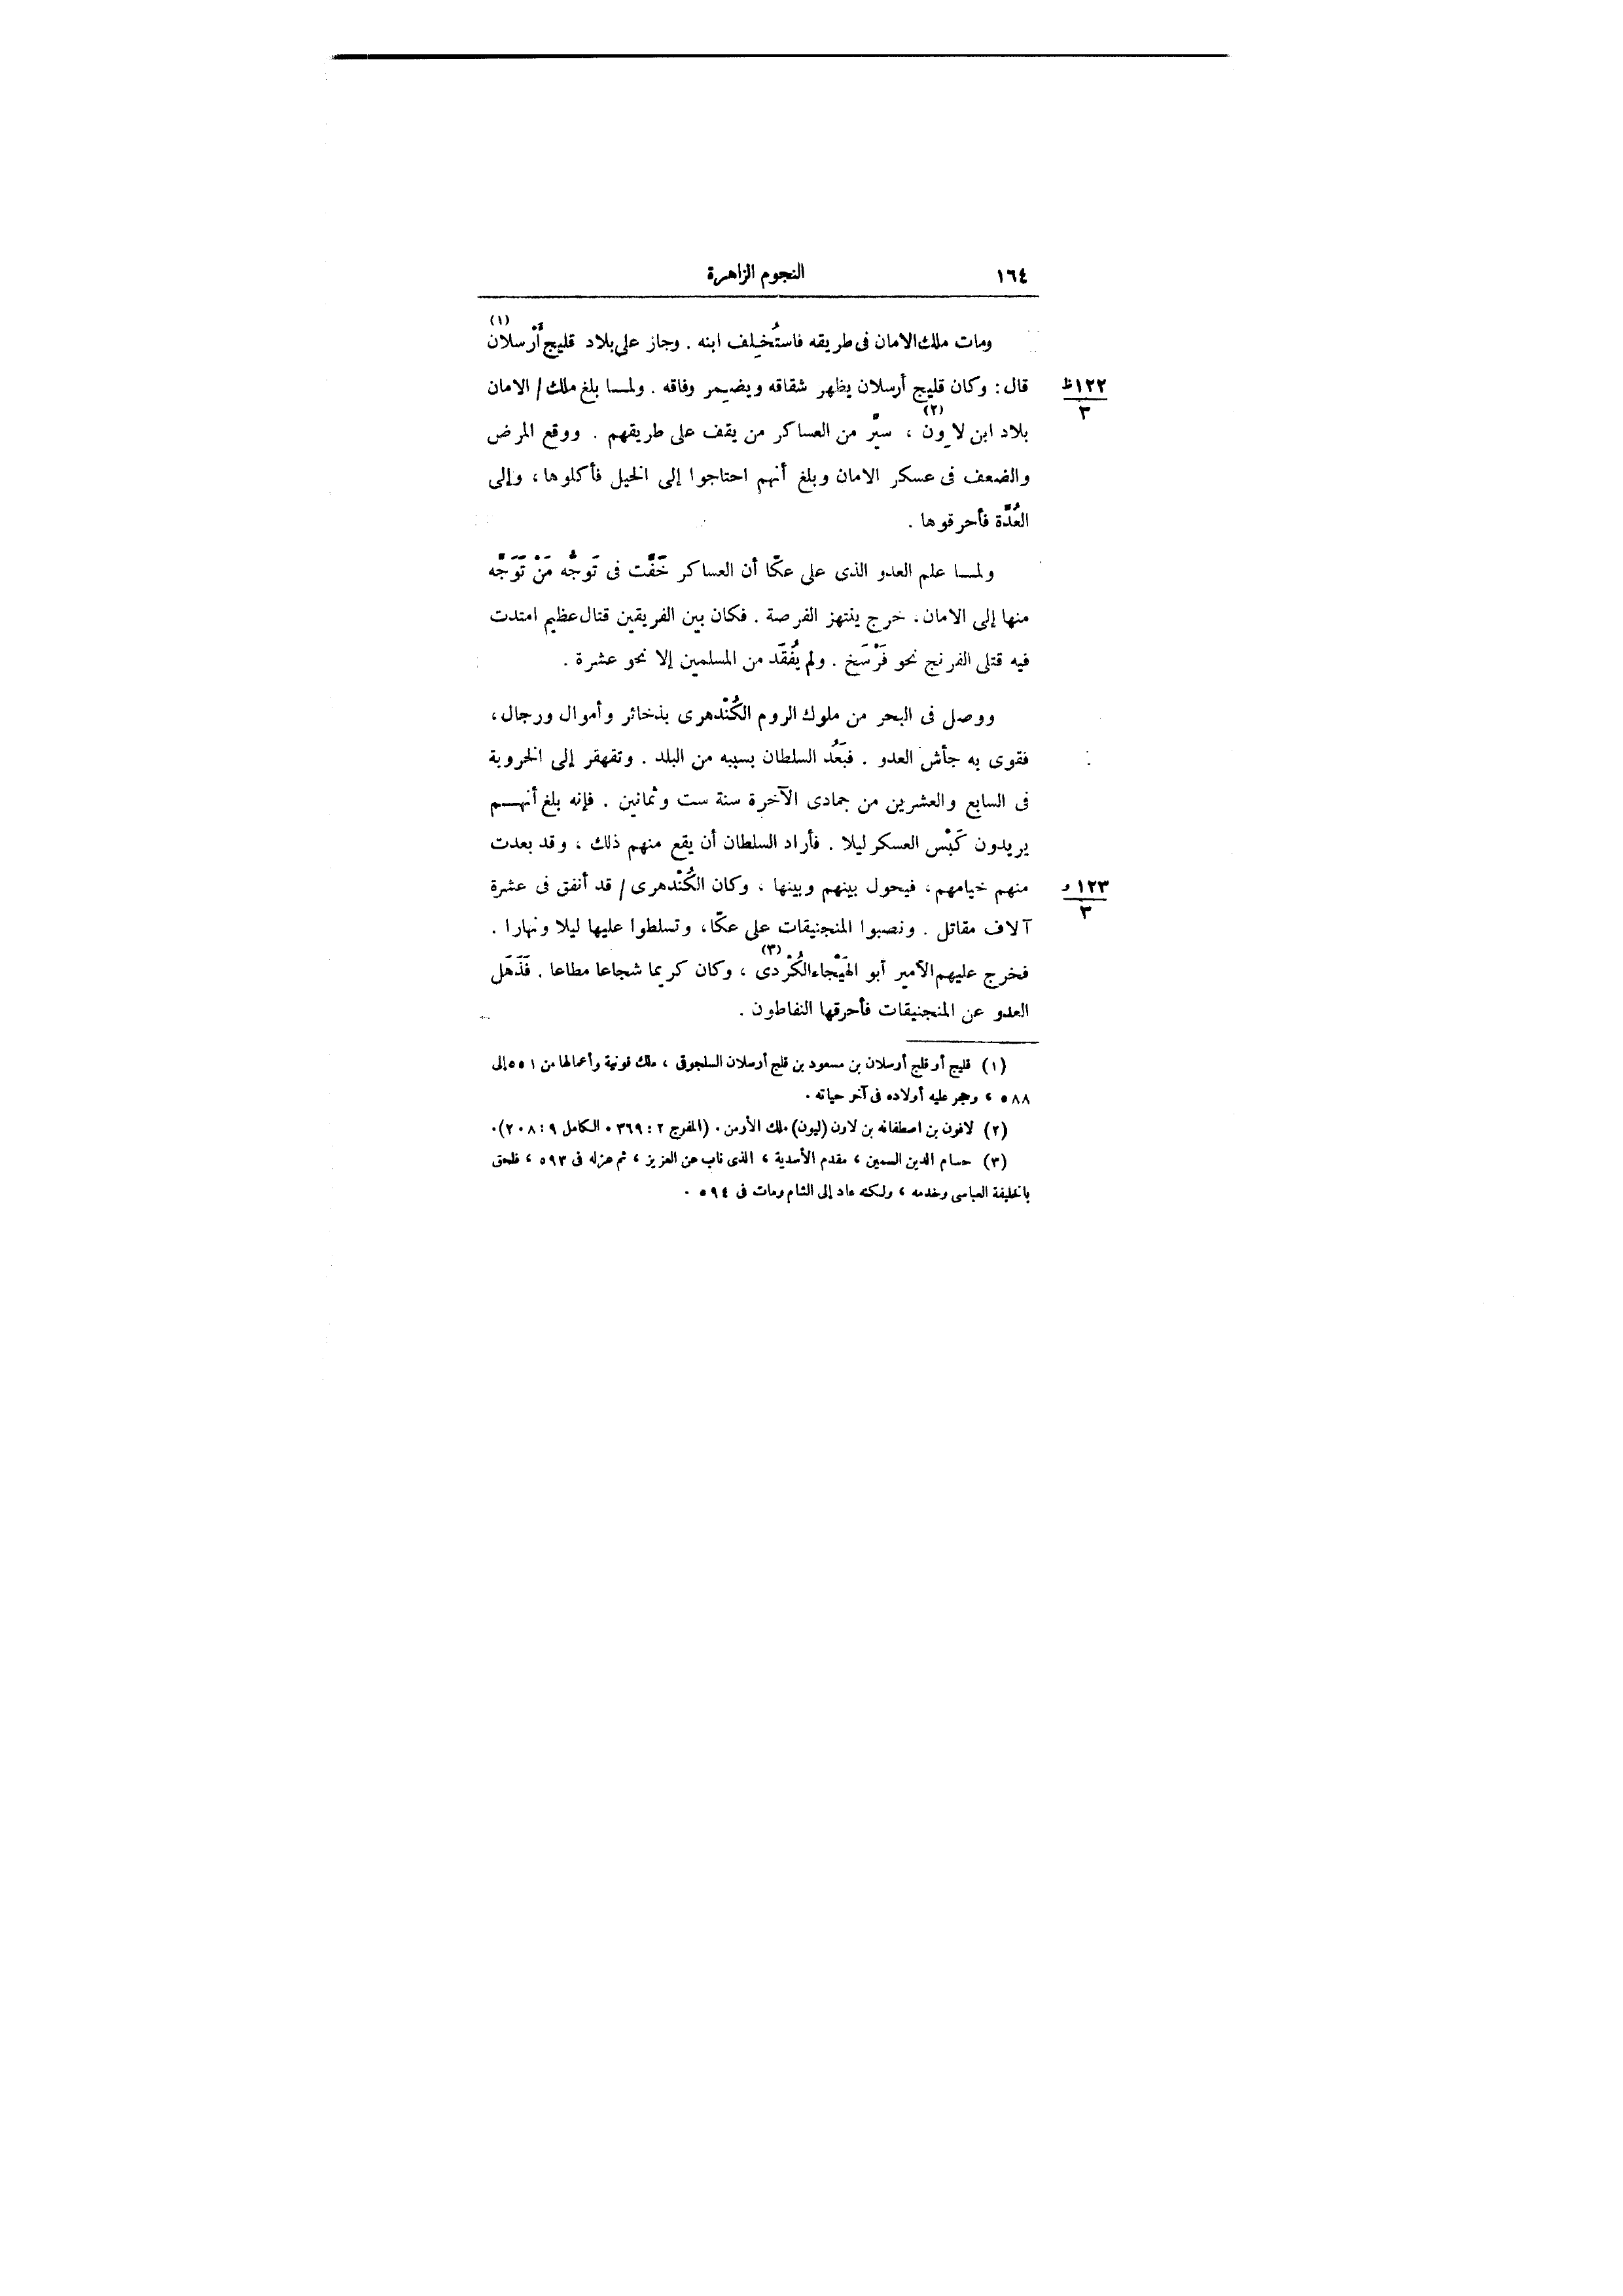 ١٦٤ النجوم الزاهرة
ومات ملك الامان فى طريقه فاستُخلِف ابنه . وجاز على بلاد قليج أَرْسلان (١)
١٢٢ظ
٣
قال : وكان قليج أرسلان يظهر شقاقه ويضمر وفاقه . ولمـا بلغ ملك / الامان
بلاد ابن لاوِن (٢) ، سيَّر من العساكر من يقف على طريقهم . ووقع المرض
والضعف فى عسكر الامان وبلغ أنهم احتاجوا إلى الخيل فأكلوها ، وإلى
العُدَّة فأحرقوها .
ولمـا علم العدو الذى على عكّا أن العساكر خَفَّت فى تَوجُّه مَنْ تَوَجَّه
منها إلى الامان . خرج ينتهز الفرصة . فكان بين الفريقين قتال عظيم امتدت
فيه قتلى الفرنج نحو فَرْسَخ . ولم يُفْقَد من المسلمين إلا نحو عشرة .
ووصل فى البحر من ملوك الروم الكُنْدهرى بذخائر وأموال ورجال ،
فقوى به جأش العدو . فبَعُد السلطان بسببه من البلد . وتقهقر إلى الخروبة
فى السابع والعشرين من جمادى الآخرة سنة ست وثمانين . فإنه بلغ أنهـم
يريدون كَبْس العسكر ليلا . فأراد السلطان أن يقع منهم ذلك ، وقد بعدت
١٢٣ و
٣
منهم خيامهم ، فيحول بينهم وبينها ، وكان الكُنْدهرى / قد أنفق فى عشرة
آلاف مقاتل . ونصبوا المنجنيقات على عكّا ، وتسلطوا عليها ليلا ونهارا .
فخرج عليهم الأمير أبو الهَيْجاء الكُرْدى (٣) ، وكان كريما شجاعا مطاعا . فَذَهَل
العدو عن المنجنيقات فأحرقها النفاطون .
(١) قليج أو قلج أرسلان بن مسعود بن قلج أرسلان السلجوقى ، ملك قونية وأعمالها من ٥٥١ إلى
٥٨٨ ، وحجر عليه أولاده فى آخر حياته .
(٢) لافون بن اصطفانه بن لاون (ليون) ملك الأرمن . (المفرج ٢ : ٣٦٩ . الكامل ٩ : ٢٠٨) .
(٣) حسام الدين السمين ، مقدم الأسدية ، الذى ناب عن العزيز ، ثم عزله فى ٥٩٣ ، فلحق
بالخليفة العباسى وخدمه ، ولكنه عاد إلى الشام ومات فى ٥٩٤ .